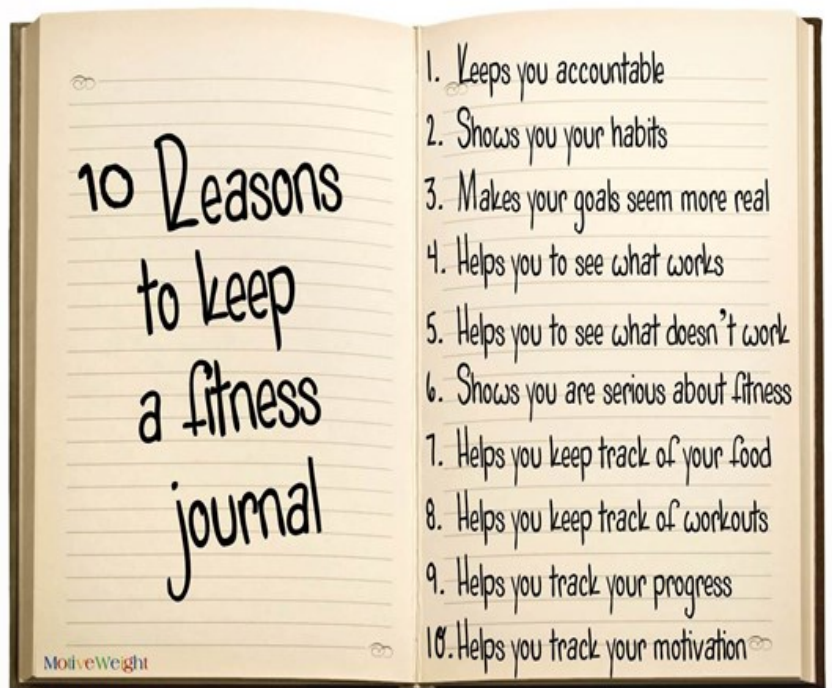 10 Reasons
to keep
a fitness
journal
MotiveWeight
1. Keeps you accountable
2. Shows you your habits
3. Makes your goals seem more real
4. Helps you to see what works
5. Helps you to see what doesn't work
6. Shows you are serious about fitness
7. Helps you keep track of your food
8. Helps you keep track of workouts
9. Helps you track your progress
10. Helps you track your motivation